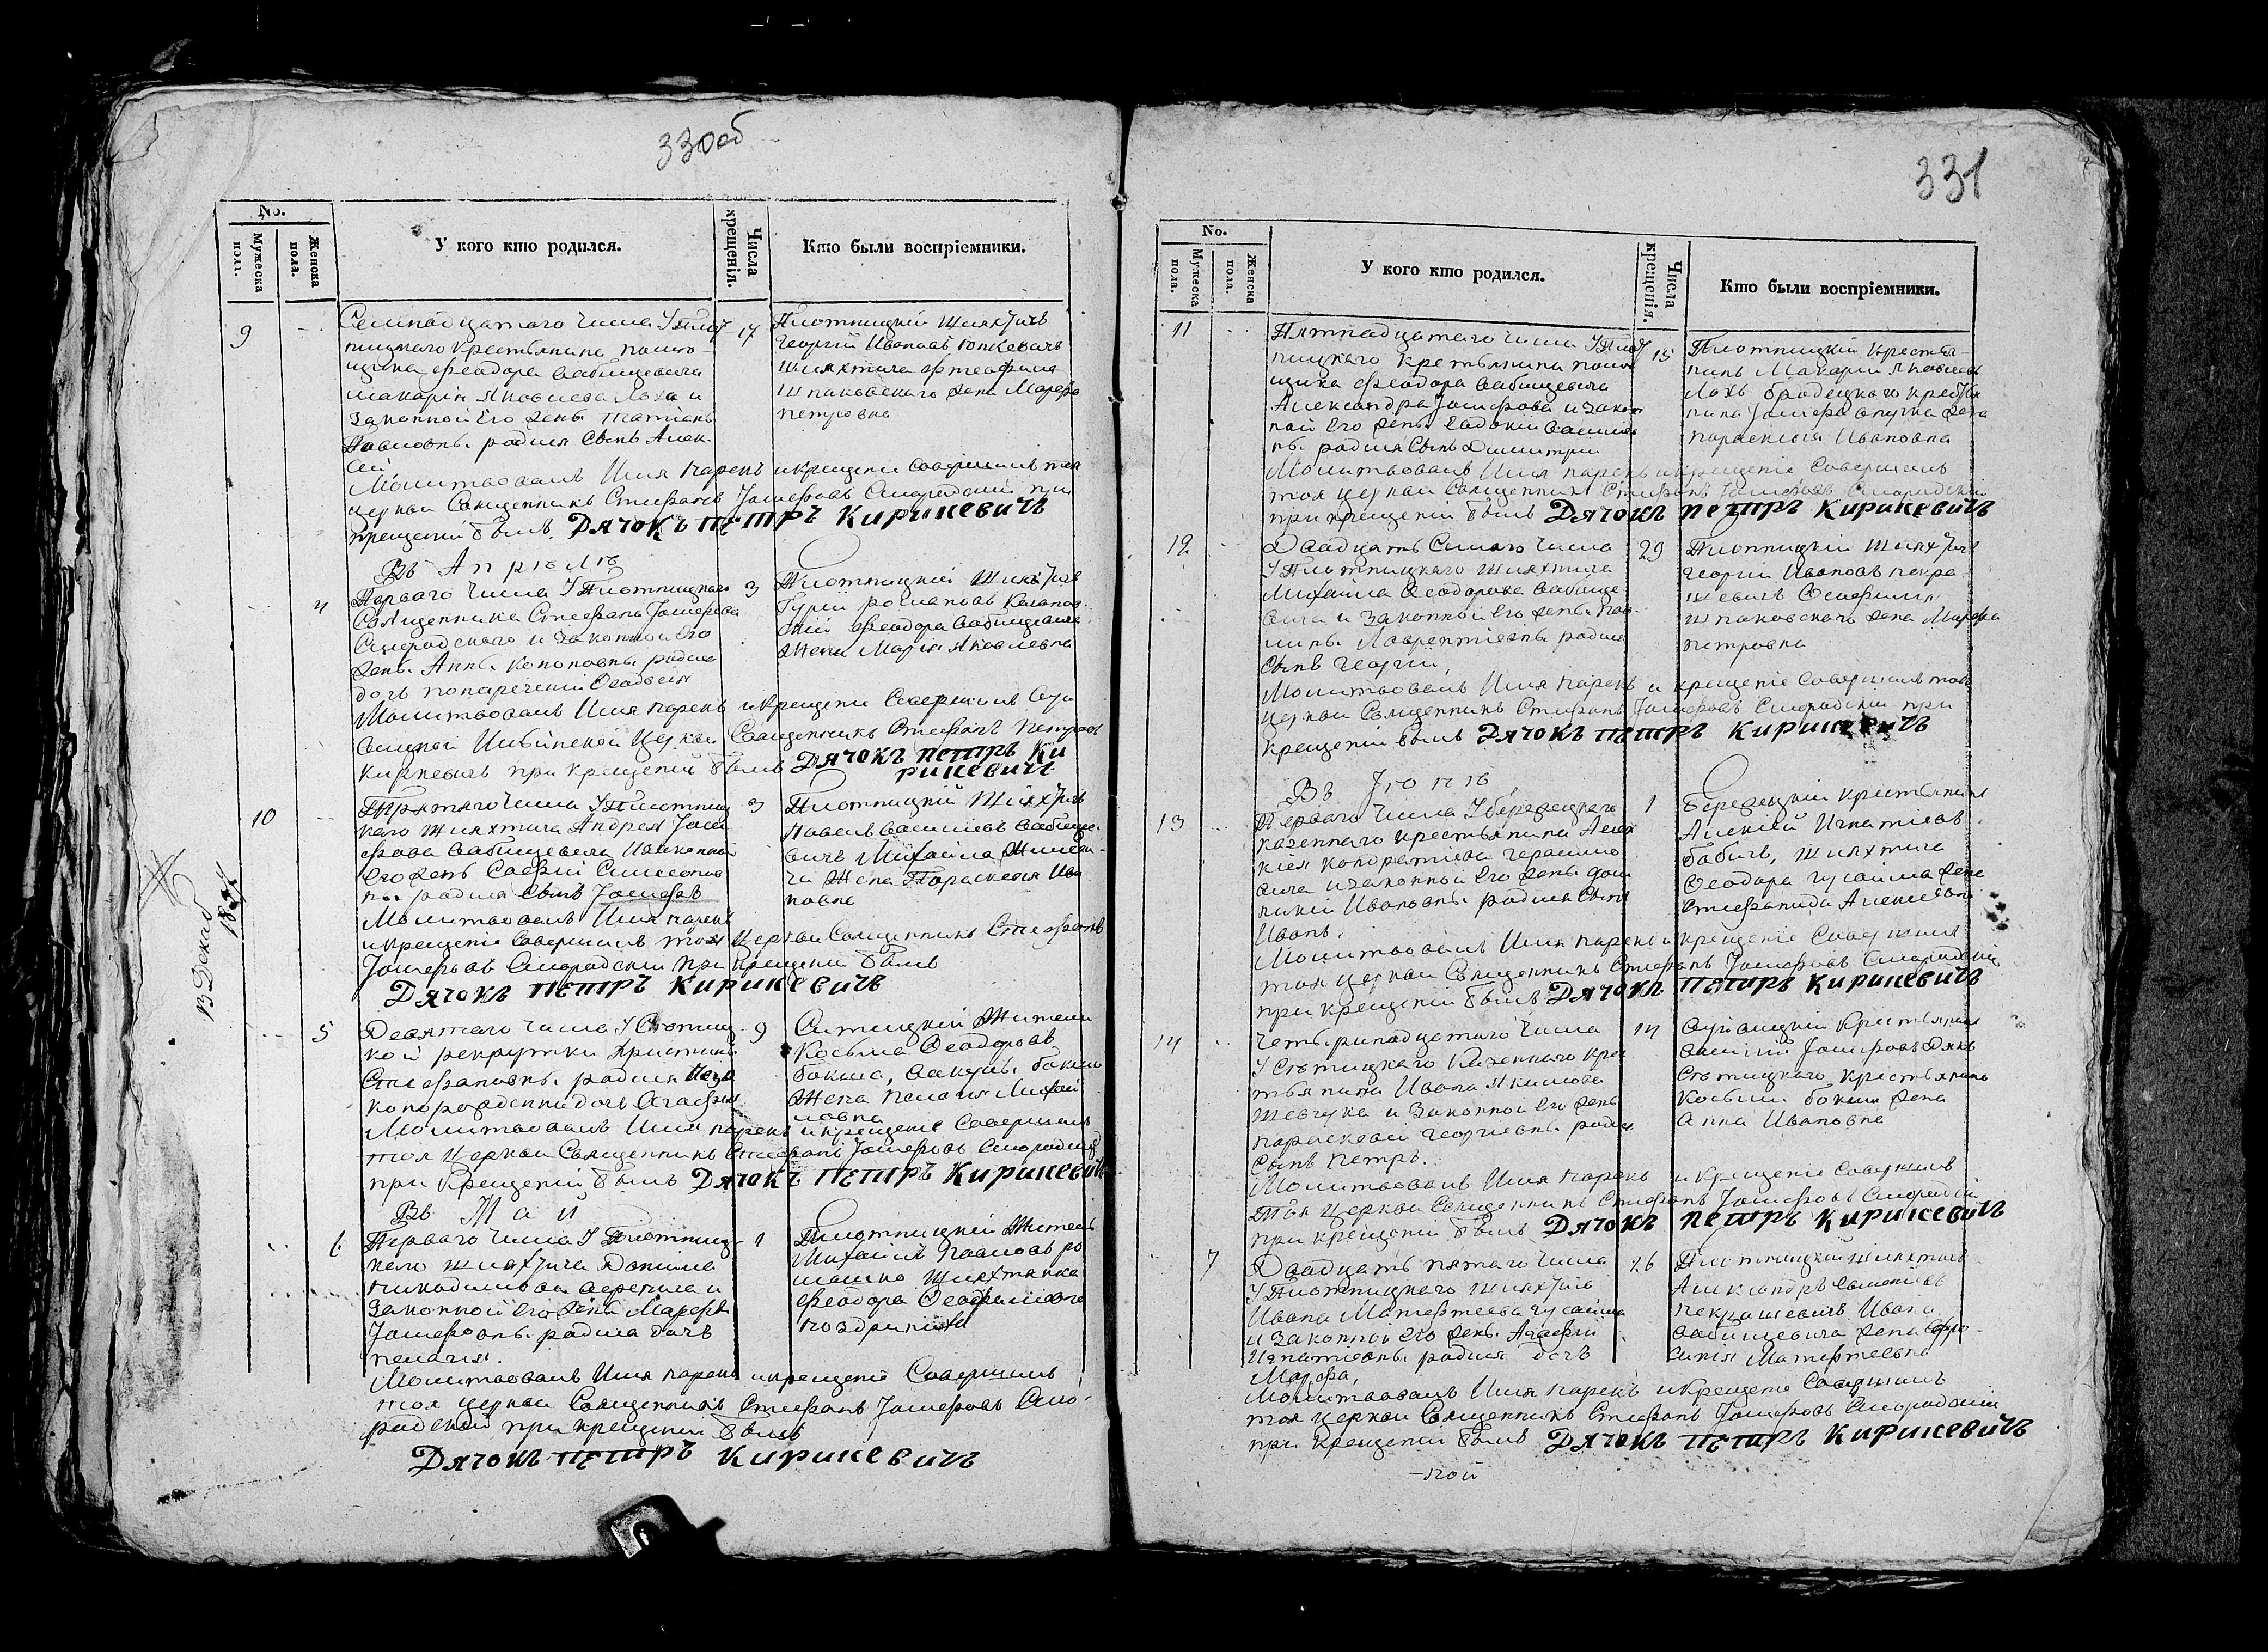 330об
No.
Мужеска пола.
Женска пола.
У кого кто родился.
Числа крещенія.
Кто были воспріемники.
9
Семнадцатаго числа У Плот
ницкаго крестьянина помѣ
щика Феодора Вабищевича
Макарія Яковлева Лоха и
законной его жены Татіаны
Павловны родился Сынъ Алек
сѣй
17
Плотницкій Шляхтичъ
Георгій Ивановъ
Шляхтича
Шпаковскаго жена Марфа
Петровна
Молитвовалъ Имя нарекъ и крещеніе Совершилъ тоя
церкви Священникъ Стефанъ Іосифовъ Смородскій при
крещеніи былъ Дячокъ Петръ Кирикевичъ
Въ Апрѣлѣ
4
Перваго числа У Плотницкаго
Священника Стефана Іосифова
Смородскаго и законной его
жены Анны Кононовны родил
дочь понареченіи Феодосія
3
Плотницкій Шляхтичъ
Гурій Романовъ
Феодора Вабищевича
Жена Марія Яковлевна
Молитвовалъ Имя нарекъ и крещеніе Совершилъ
Церкви Священникъ Стефанъ Петровъ
Киркевичъ при крещеніи былъ Дячокъ Петръ Ки
рикевичъ
10
Третяго числа У Плотниц
каго Шляхтича Андрея Іоси
фова Вабищевича и законной
его жены Софіи Симеонов
ны родился Сынъ Іосифъ
3
Плотницкій Шляхтичъ
Павелъ Васильевъ Вабище
вичъ Михаила
Жена Параскевія Ива
новна
Молитвовалъ Имя нарекъ
и крещеніе Совершилъ тоя Церкви Священникъ Стефанъ
Іосифовъ Смородскій при крещеніи былъ
Дячокъ Петръ Кирикевичъ
В Декаб
1854
5
Девятаго числа У Сытиц
кой рекрутки Христины
Стефановны родися неза
конорожденна дочь Агафія
9
Сытицкій Житель
Косьма Феодоровъ
Бокша, Бокши
Жена Пелагія Михай
ловна
Молитвовалъ Имя нарекъ и крещеніе Совершилъ
тоя Церкви Священникъ Стефанъ Іосифовъ Смородскій
при крещеніи былъ Дячокъ Петръ Кирикевичъ
Въ Маи
6
Перваго числа У Плотниц
каго Шляхтича Даніила
и
законной его жены Марфы
Іосифовны родилась дочь
Пелагія.
1
Плотницкій Житель
Михаилъ Павловъ Ро
машко Шляхтянка
Феодора
Молитвовалъ Имя нарекъ и крещеніе Совершилъ
тоя церкви Священникъ Стефанъ Іосифовъ Смо
родской при крещеніи былъ
Дячокъ Петръ Кирикевичъ
331
No.
Мужеска пола.
Женска пола.
У кого кто родился.
Числа крещенія.
Кто были воспріемники.
11
Пятнадцатаго числа У Плот
ницкаго крестьянина помѣ
щика Феодора Вабищевича
Александра Іосифова и закон
ной его жены Евдокіи Василіев
ны родился Сынъ Димитрій
15
Плотницкій Крестья
нинъ Макарій Яковлевъ
Лохъ Бродецкаго крестья
нина Іосифа жена
Параскевія Ивановна
Молитвовалъ Имя нарекъ и крещеніе Совершилъ
тоя церкви Священникъ Стефанъ Іосифовъ Смородскій
при крещеніи былъ Дячокъ Петръ Кирикевичъ
12
Двадцать Сымаго числа
У Плотницкаго Шляхтича
Михаила Феодорова Вабище
вича и законной его жены Пав
лины Лаврентіевны родился
Сынъ Георгій,
29
Плотницкій Шляхтичъ
Георгій Ивановъ Некра
шевичъ
Шпаковскаго жена Марфа
Петровна
Молитвовалъ Имя нарекъ и крещеніе Совершилъ тоя
церкви Священникъ Стефанъ Іосифовъ Смородскій при
крещеніи былъ Дячокъ Петръ Кирикевичъ
Въ Іюнѣ
13
Перваго числа У Бережецкаго
казеннаго крестьянина Алек
сія Кондратіева Герасимо
вича и законной его жены Дом
никіи Ивановны родился Сынъ
Иванъ.
1
Бережецкій крестьянинъ
Алексѣй Игнатіевъ
Бабичъ, Шляхтича
Феодора Гусаима жена
Стефанида Алексіевна
Молитвовалъ Имя нарекъ и крещеніе Совершилъ
тоя церкви Священникъ Стефанъ Іосифовъ Смородскій
при крещеніи былъ Дячокъ Петръ Кирикевичъ
14
Четырнадцатаго числа
У Сытицкаго Казеннаго крес
тьянина Ивана Якимова
Шевчука и законной его жены
Параскевіи Георгіевны родил
Сынъ Петръ.
14
Крестьянинъ
Василій Іосифовъ
Сытицкаго крестьянина
Косьмы Бокши жена
Анна Ивановна
Молитвовалъ Имя нарекъ и крещеніе Совершилъ
тоя церкви Священникъ Стефанъ Іосифовъ Смородскій
при крещеніи былъ Дячокъ Петръ Кирикевичъ
7
Двадцать пятаго числа
У Плотницкаго Шляхтича
Ивана Матефеева Гусаима
и законной его жены Агафіи
Игнатіевны родися дочь
Марфа,
26
Плотницкій Шляхтичъ
Александръ
Некрашевичъ Ивана
Вабищевича жена Ефро
синія Матефеевна
Молитвовалъ Имя нарекъ и крещеніе Совершилъ
тоя церкви Священникъ Стефанъ Іосифовъ Смородскій
при крещеніи былъ Дячокъ Петръ Кирикевичъ